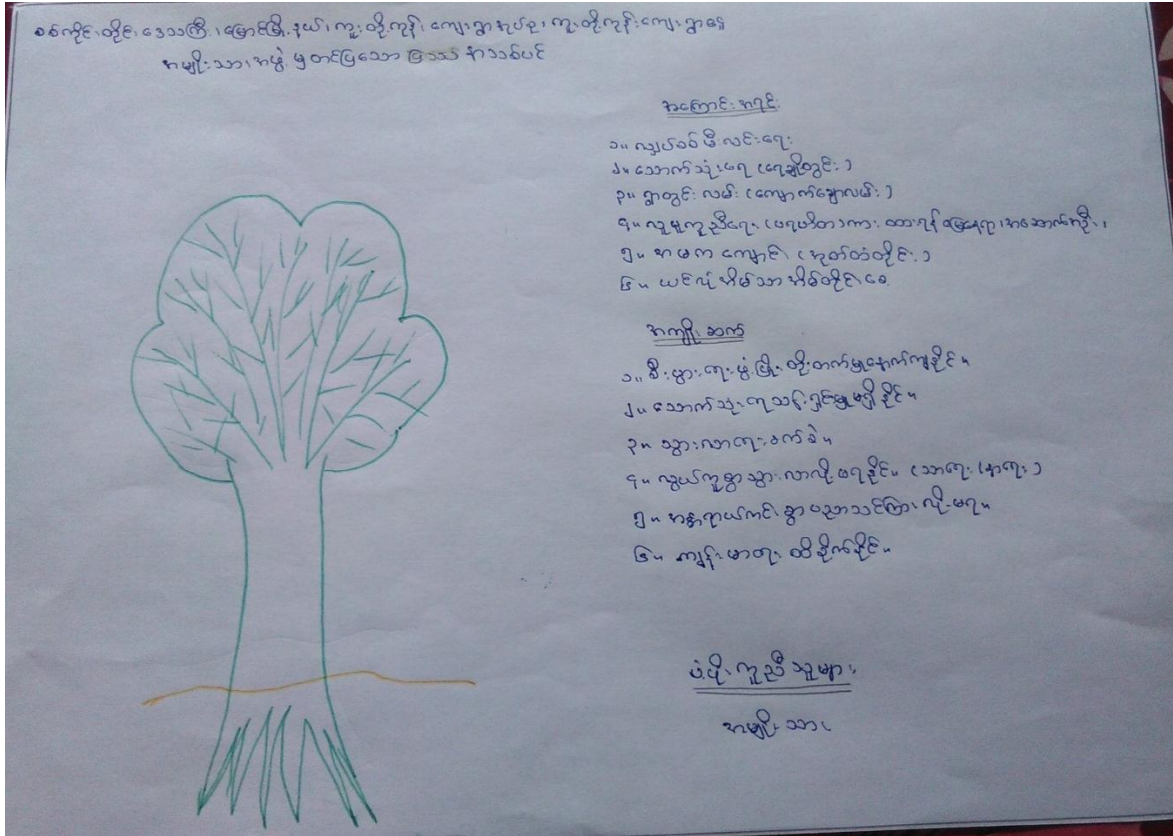 စစ်ကိုင်းတိုင်းဒေသကြီး၊ မြောင်မြို့နယ်၊ ကူးတို့ကုန်း ကျေးရွာအုပ်စု၊ ကူးတို့ကုန်းကျေးရွာနေ
အမျိုးသားအဖွဲ့မှ တင်ပြသော ပြဿနာသစ်ပင်
အကြောင်းအရင်း
၁။ လျှပ်စစ်မီးလင်းရေး
၂။ သောက်သုံးရေ (ရေချိုတွင်း)
၃။ ရွာတွင်းလမ်း (ကျောက်ချောလမ်း)
၄။ လူမှုကူညီရေး (ပရဟိတကား ထားရန်မြေနေရာ၊ အဆောက်အဦး)
၅။ အမကကျောင်း (အုတ်တံတိုင်း)
၆။ ယင်လုံအိမ်သာ အိမ်တိုင်းစေ့
အကျိုးဆက်
၁။ စီးပွားရေးဖွံ့ဖြိုးတိုးတက်မှုနောက်ကျနိုင်။
၂။ သောက်သုံးရေသန့်ရှင်းမှုမရှိနိုင်။
၃။ သွားလာရေးခက်ခဲ။
၄။ လွယ်ကူစွာသွားလာလို့မရနိုင်။ (သာရေး၊ နာရေး)
၅။ အန္တရာယ်ကင်းစွာ ပညာသင်ကြားလို့မရ။
၆။ ကျန်းမာရေး ထိခိုက်နိုင်။
ပံ့ပိုးကူညီသူများ
အမျိုးသား